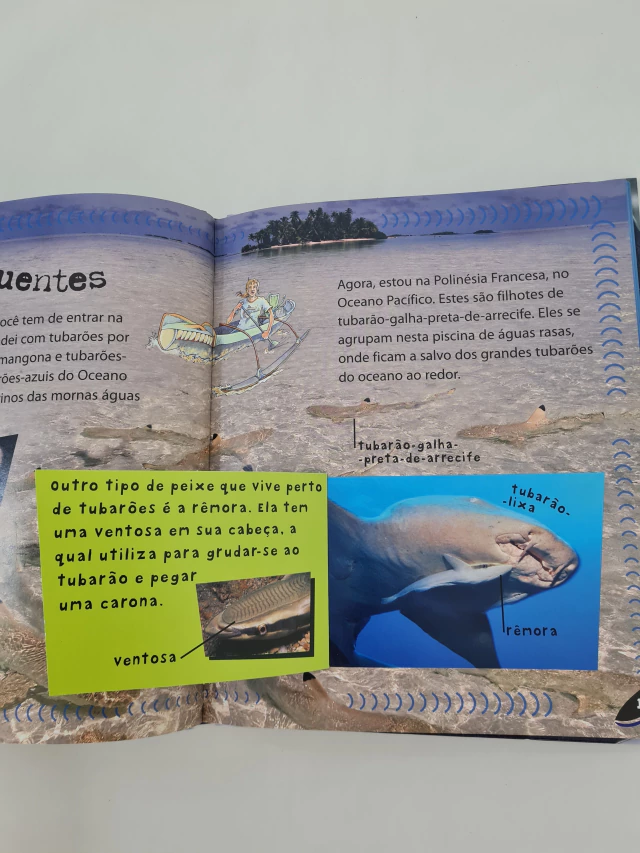 uentes
ocê tem de entrar na
dei com tubarões por
mangona e tubarões-
ões-azuis do Oceano
inos das mornas águas
Agora, estou na Polinésia Francesa, no
Oceano Pacífico. Estes são filhotes de
tubarão-galha-preta-de-arrecife. Eles se
agrupam nesta piscina de águas rasas,
onde ficam a salvo dos grandes tubarões
do oceano ao redor.
tubarão-galha-
-preta-de-arrecife
Outro tipo de peixe que vive perto
de tubarões é a rêmora. Ela tem
uma ventosa em sua cabeça, a
qual utiliza para grudar-se ao
tubarão e pegar
uma carona.
ventosa
tubarão-
-lixa
rêmora